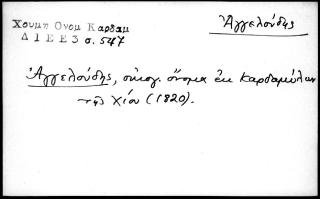 Χουμη Ονομ Καρδαμ
Δ Ι Ε Ε 3 σ. 547
Ἀγγελούδης
Ἀγγελούδης, οἰκογ. ὄνομα ἐκ Καρδαμύλων
τῆς Χίου (1820).